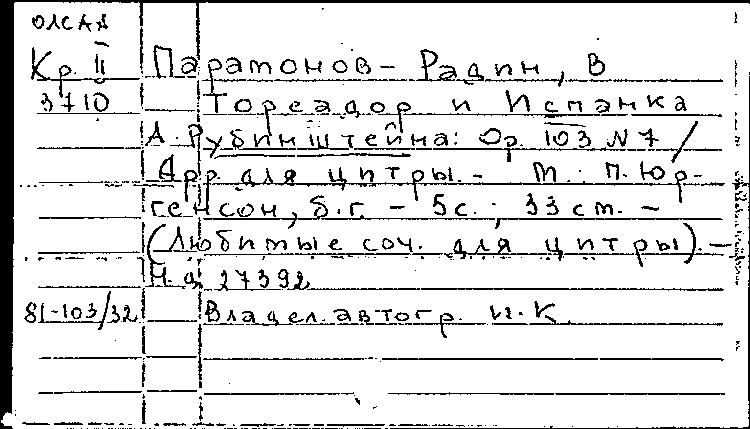 ОЛСАА
Кр II Парамонов- Радин, В
3710 Тореадор и Испанка
А. Рубинштейна: Op. 103 N 7 /
Арр для цитры. - М.: П. Юр-
генсон, б.г. - 5с.; 33 cm. -
(Любимые соч. для цитры). -
Н.д. 27392
81-103/32 Владел. автогр. И. К.